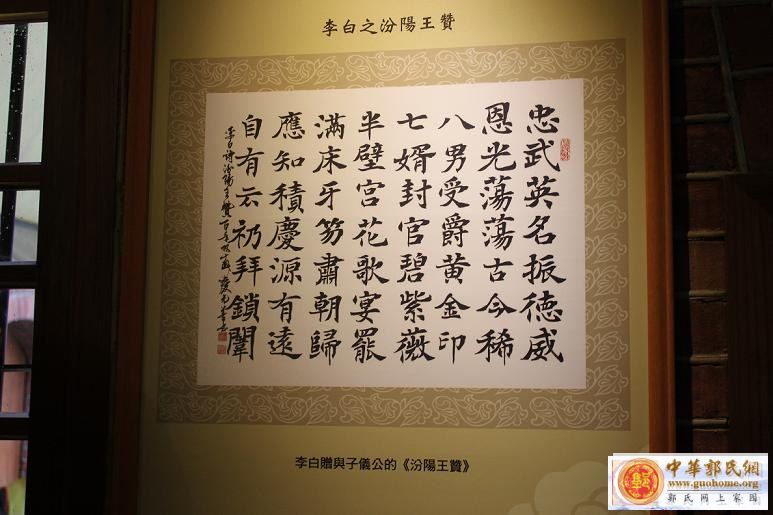 李白之汾陽王贊
忠武英名振德威
恩光蕩蕩古今稀
八男受爵黃金印
七婿封官碧紫薇
半壁宮花歌宴罷
滿床牙笏肅朝歸
應知積慶源有遠
自有云礽拜鎖闈
李白詩汾陽王贊
李白贈與子儀公的《汾陽王贊》
中華郭氏網
www.guohome.org
郭氏网上家园